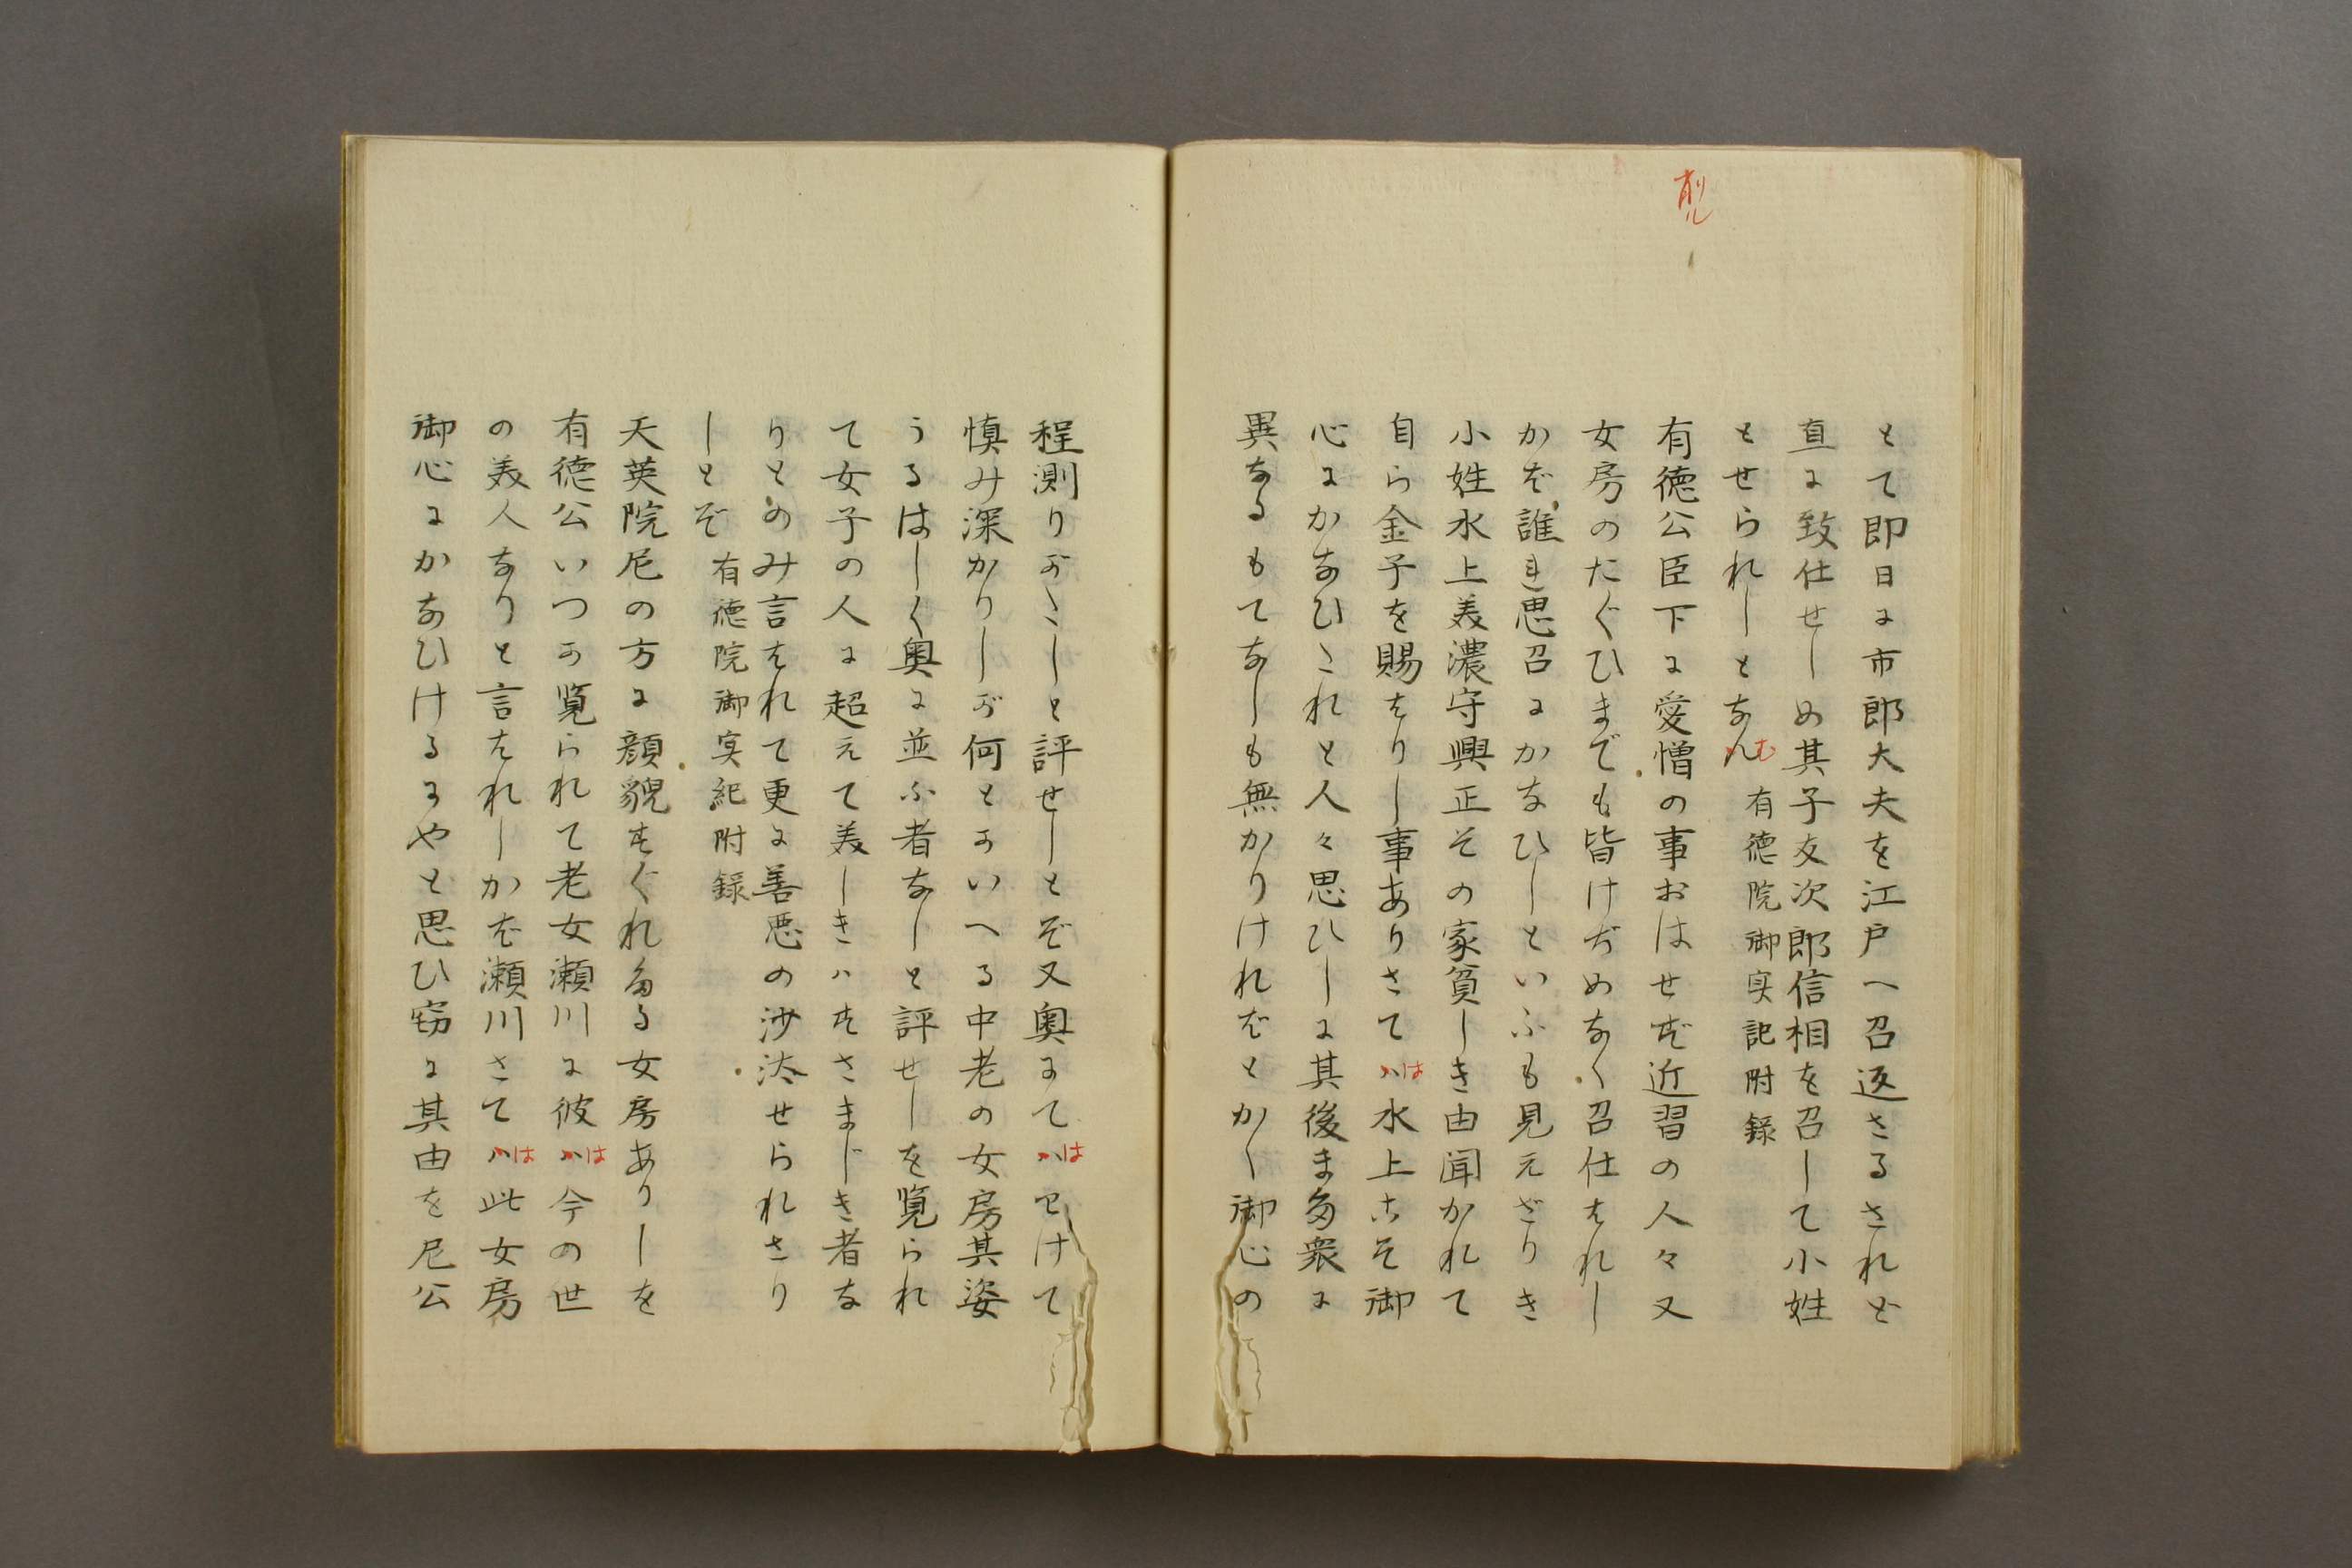 削ル
とて即日に市郎大夫を江戸へ召返さるされど
直に致仕せしめ其子友次郎信相を召して小姓
とせられしとなん む 有徳院御実記附録
有徳公臣下に愛憎の事おはせず近習の人々又
女房のたぐひまでも皆けぢめなく召仕はれし
かば誰を思召にかなひしといふも見えざりき
小姓水上美濃守興正その家貧しき由聞かれて
自ら金子を賜はりし事ありさてハ は 水上こそ御
心にかなひたれと人々思ひしに其後また衆に
異なるもてなしも無かりければとかく御心の
程測りがたしと評せしとぞ又奥にてハ は わけて
慎み深かりしが何とかいへる中老の女房其姿
うるはしく奥に並ぶ者なしと評せしを覧られ
て女子の人に超えて美しきハ大さまじき者な
りとのみ言はれて更に善悪の沙汰せられざり
しとぞ 有徳院御実紀附録
天英院尼の方に顔貌すぐれたる女房ありしを
有徳公いつか覧られて老女瀬川に彼ハ は 今の世
の美人なりと言はれしかば瀬川さてハ は 此女房
御心にかなひけるにやと思ひ窃に其由を尼公